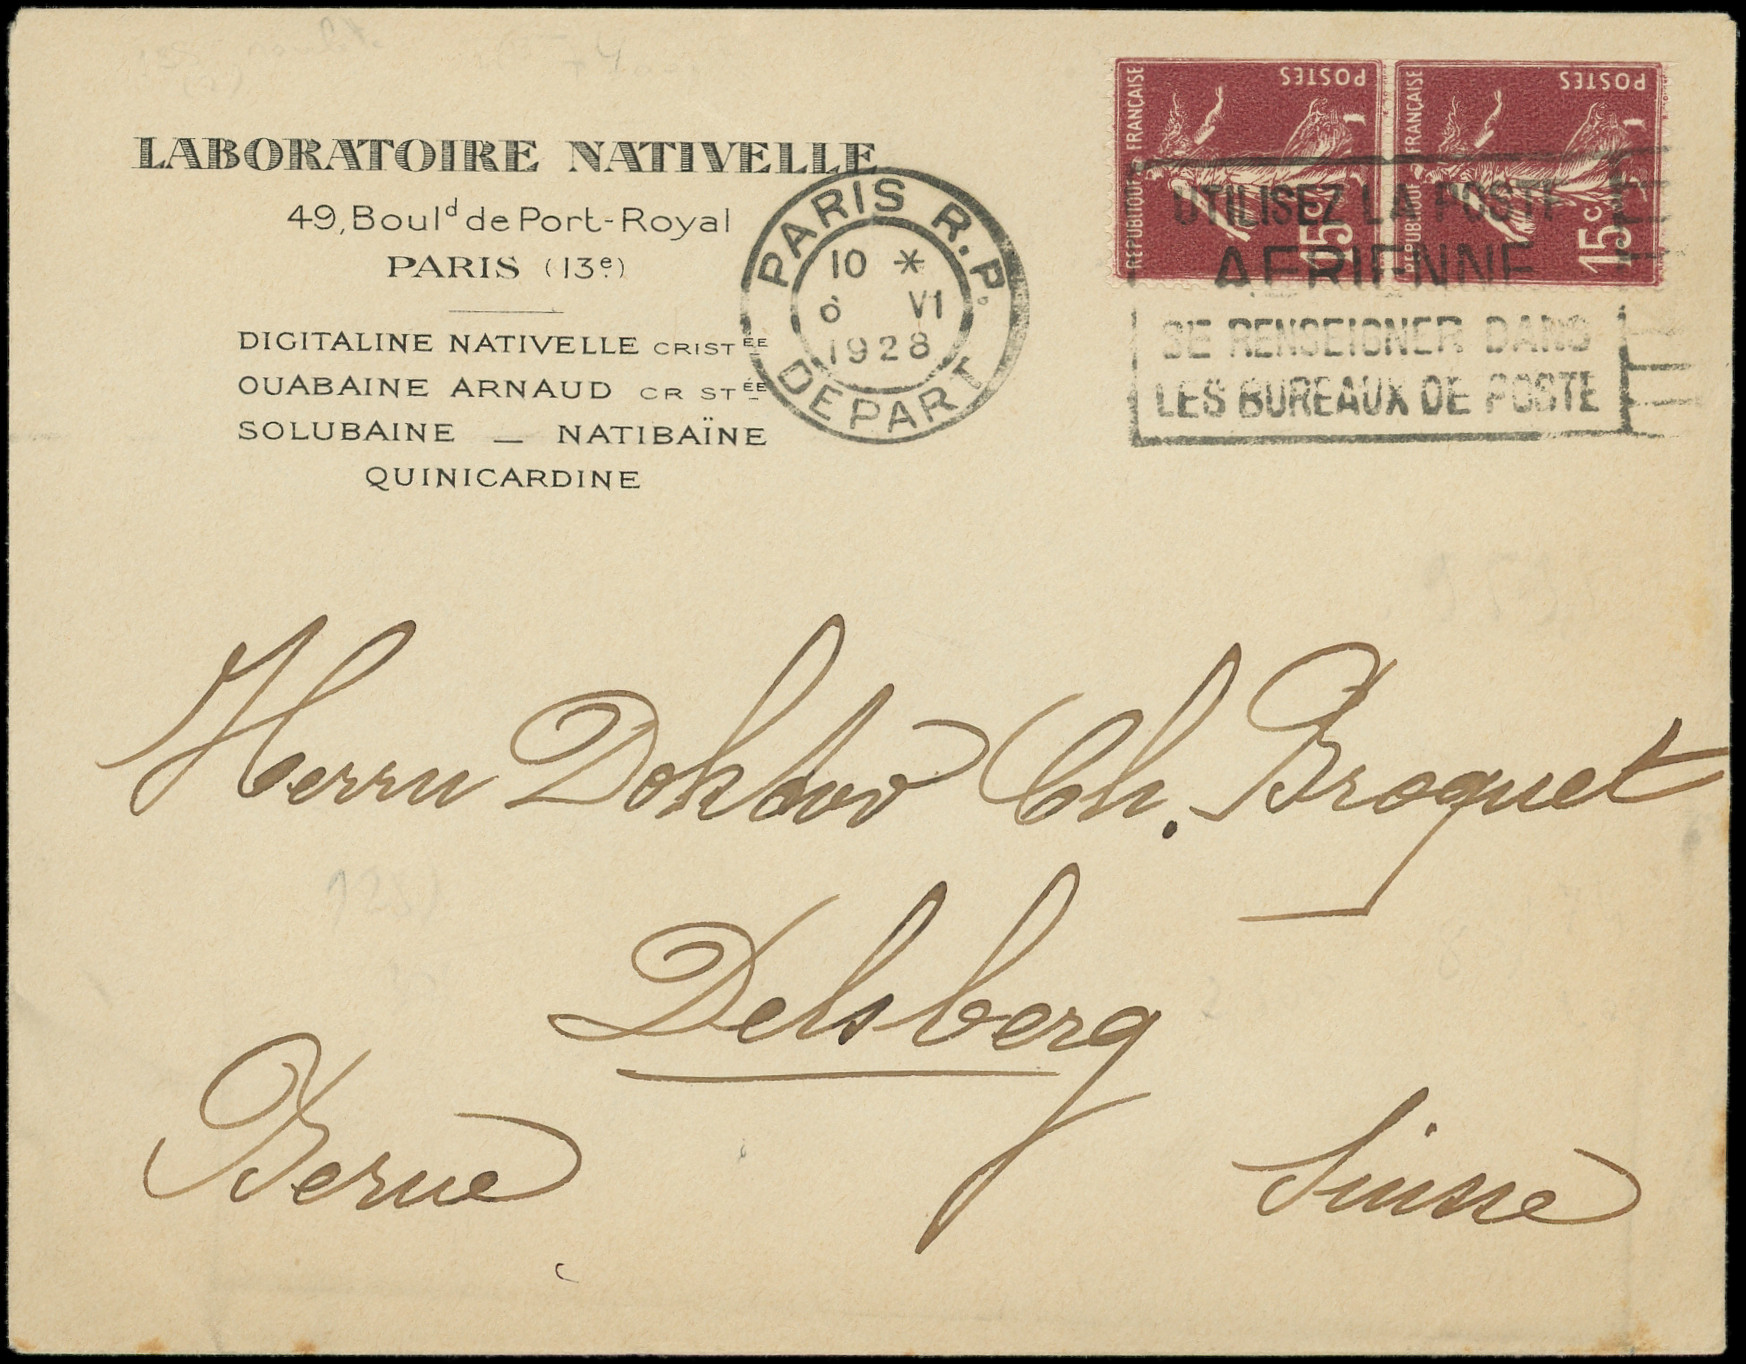 LABORATOIRE NATIVELLE
49, Boulᵈ de Port-Royal
PARIS (13ᵉ)
DIGITALINE NATIVELLE CRISTÉE
OUABAINE ARNAUD CR STÉE
SOLUBAINE _ NATIBAÏNE
QUINICARDINE
PARIS R.P.
10 *
6 VI
1928
DEPART
REPUBLIQUE FRANÇAISE
POSTES
15c
REPUBLIQUE FRANÇAISE
POSTES
15c
UTILISEZ LA POSTE
AERIENNE
SE RENSEIGNER DANS
LES BUREAUX DE POSTE
Herrn Doktor Ch. Broquet
Delsberg
Berne
Suisse